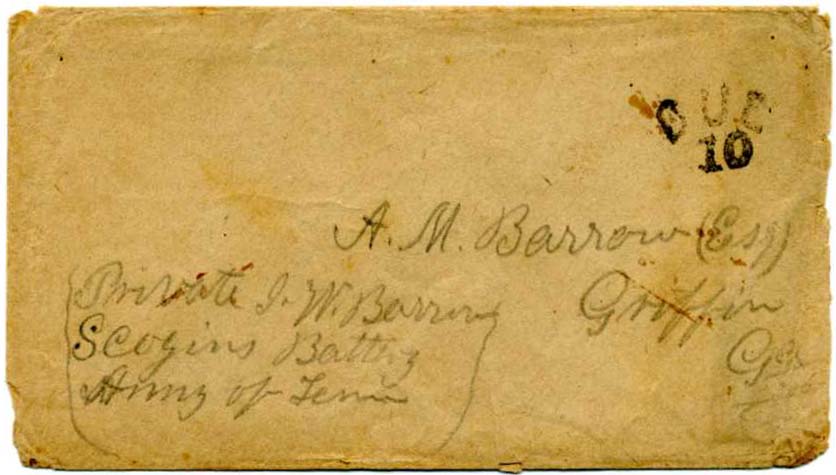 DUE
10
A. M. Barrow (Esq)
Griffin
Ga
Private J. W. Barrow
Scogins Battery
Army of Tenn